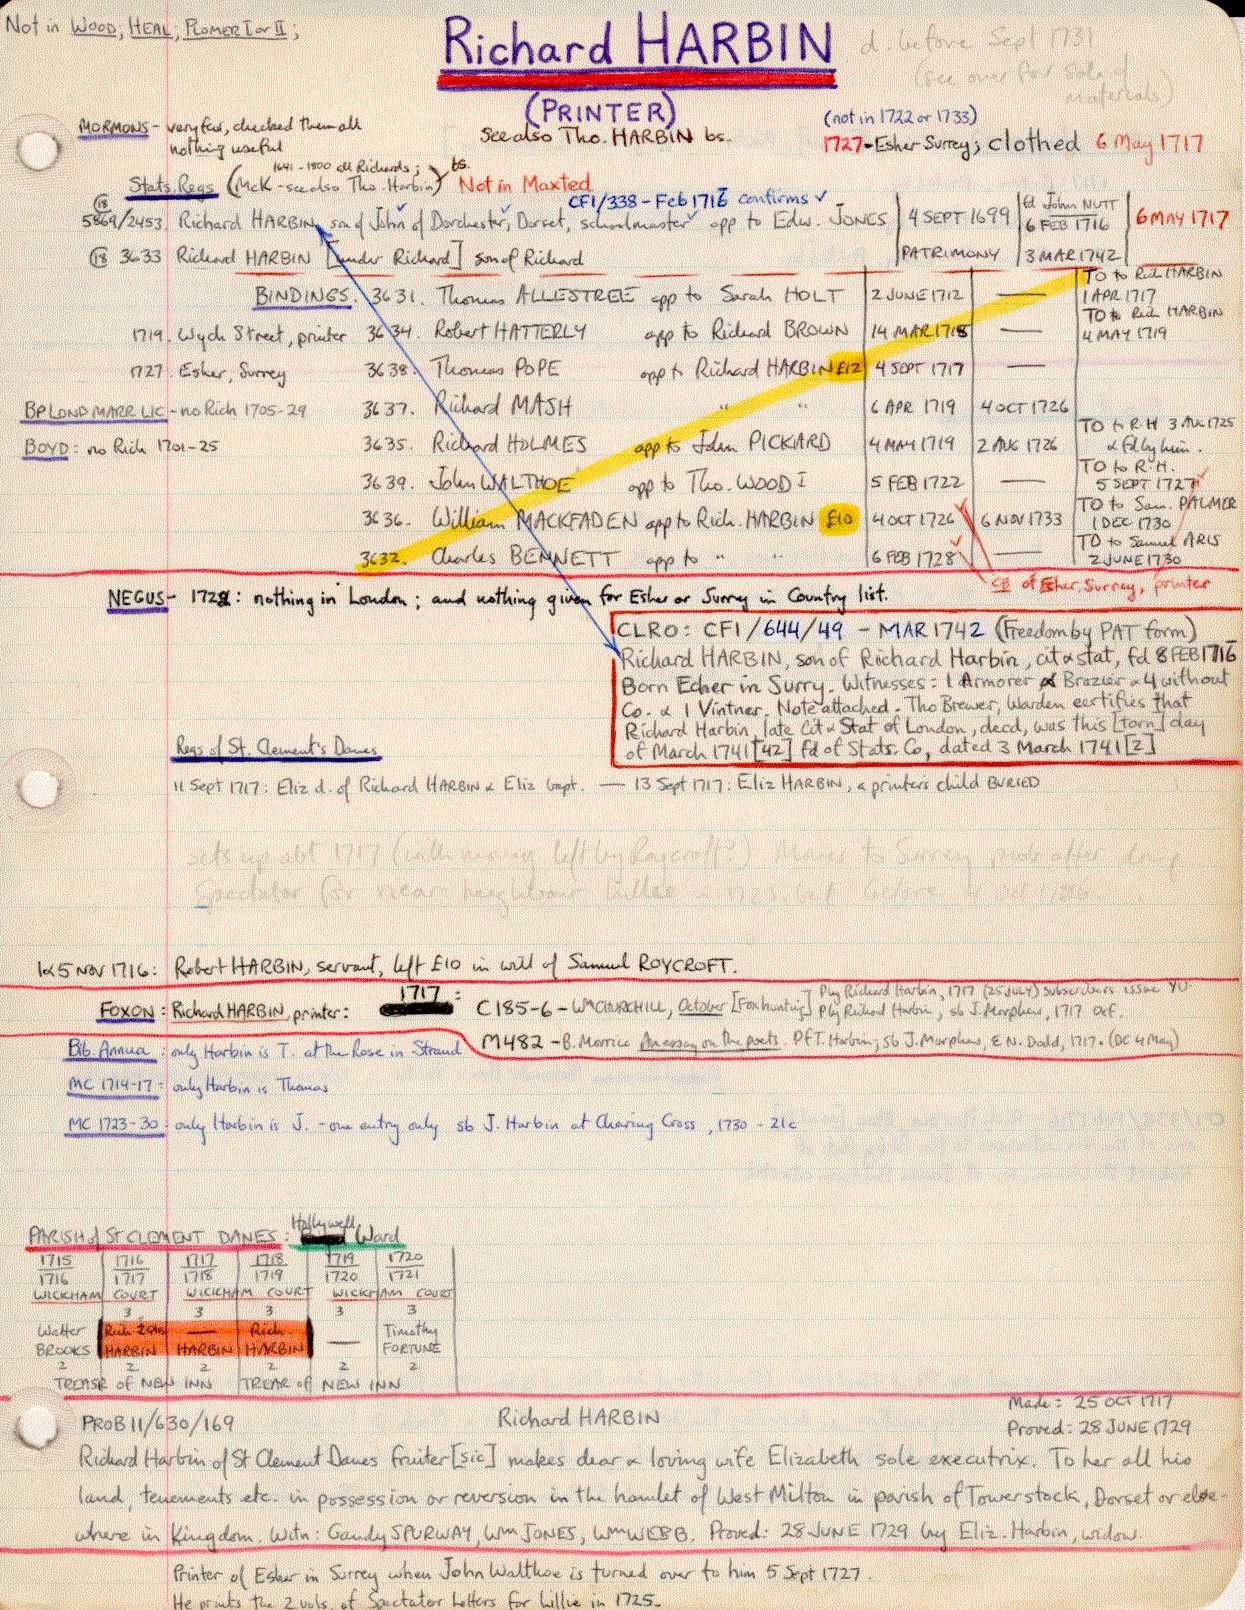 Not in WOOD; HEAL; PLOMER I or II;
Richard HARBIN
d. before Sept 1731
(see over for sale of
materials)
(PRINTER)
See also Tho. HARBIN bs.
(not in 1722 or 1733)
1727 - Esher Surrey; clothed 6 May 1717
MORMONS - very few, checked them all
nothing useful
1641-1800 all Richards;
Stats. Regs (McK - see also Tho. Harbin) bs. Not in Maxted
CF1/338 - Feb 1716 confirms ✓
(18)
5869/2453 Richard HARBIN, son of John of Dorchester, Dorset, schoolmaster app to Edw. JONES 4 SEPT 1699 fd John NUTT 6 FEB 1716 6 MAY 1717
(18) 3633 Richard HARBIN [under Richard] son of Richard PATRIMONY 3 MAR 1742
BINDINGS. 3631. Thomas ALLESTREE app to Sarah HOLT 2 JUNE 1712 — TO to Rich HARBIN 1 APR 1717
1719. Wych Street, printer 3634. Robert HATTERLY app to Richard BROWN 14 MAR 1718 — TO to Rich HARBIN 4 MAY 1719
1727. Esher, Surrey 3638. Thomas POPE app to Richard HARBIN £12 4 SEPT 1717 —
BP LOND MARR LIC - no Rich 1705-29 3637. Richard MASH " " 6 APR 1719 4 OCT 1726
BOYD: no Rich 1701-25 3635. Richard HOLMES app to John PICKARD 4 MAY 1719 2 AUG 1726 TO to R.H 3 AUG 1725 & fd by him.
3639. John WALTHOE app to Tho. WOOD I 5 FEB 1722 — TO to R.H. 5 SEPT 1727
3636. William MACKFADEN app to Rich. HARBIN £10 4 OCT 1726 6 NOV 1733 TO to Sam. PALMER 1 DEC 1730
3632. Charles BENNETT app to " " 6 FEB 1728 — TO to Samuel ARIS 2 JUNE 1730
CB of Esher, Surrey, printer
NEGUS - 1724: nothing in London; and nothing given for Esher or Surrey in Country list.
CLRO: CF1/644/49 - MAR 1742 (Freedom by PAT form)
Richard HARBIN, son of Richard Harbin, cit & stat, fd 8 FEB 1716
Born Echer in Surry. Witnesses: 1 Armorer & Brazier & 4 without
Co. & 1 Vintner. Note attached. Tho Brewer, Warden certifies that
Richard Harbin, late Cit & Stat of London, decd, was this [torn] day
of March 1741[42] fd of Stats. Co, dated 3 March 1741[2]
Regs of St. Clement's Danes
11 Sept 1717: Eliz d. of Richard HARBIN & Eliz bapt. — 13 Sept 1717: Eliz HARBIN, a printer's child BURIED
sets up abt 1717 (with money left by Roycroft?) Moves to Surrey prob after doing
Spectator for near neighbour Lillie in 1725, but before 4 Oct 1726.
1 & 5 NOV 1716: Robert HARBIN, servant, left £10 in will of Samuel ROYCROFT.
FOXON: Richard HARBIN, printer: 1717: C185-6 - WM CHURCHILL, October [Foxhunting] P by Richard Harbin, 1717 (25 JULY) subscribers issue YU.
P by Richard Harbin, sb J. Morphew, 1717 Oct.
M482 - B. Morrice An essay on the poets. P f T. Harbin; sb J. Morphew, & N. Dodd, 1717. (DC 4 May)
Bib. Annua: only Harbin is T. at the Rose in Strand
MC 1714-17: only Harbin is Thomas
MC 1723-30: only Harbin is J. - one entry only sb J. Harbin at Charing Cross, 1730 - 21c
PARISH of ST CLEMENT DANES: Hollywell Ward
1715 1716 1717 1718 1719 1720
1716 1717 1718 1719 1720 1721
WICKHAM COURT WICKHAM COURT WICKHAM COURT
3 3 3 3 3
Walter Rich — Rich. — Timothy
BROOKS HARBIN HARBIN HARBIN FORTUNE
2 2 2 2 2 2
TREASR of NEW INN TREAR of NEW INN
PROB 11/630/169
Richard HARBIN
Made: 25 OCT 1717
Proved: 28 JUNE 1729
Richard Harbin of St Clement Danes fruiter [sic] makes dear & loving wife Elizabeth sole executrix. To her all his
land, tenements etc. in possession or reversion in the hamlet of West Milton in parish of Towerstock, Dorset or else-
where in Kingdom. Witn: Gaudy SPURWAY, Wm JONES, Wm WEBB. Proved: 28 JUNE 1729 by Eliz. Harbin, widow.
Printer of Esher in Surrey when John Walthoe is turned over to him 5 Sept 1727.
He prints the 2 vols. of Spectator Letters for Lillie in 1725.